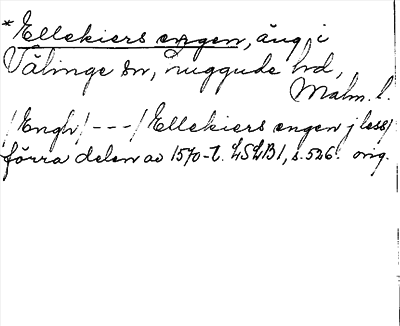 *Ellekiers engen, äng i
Välinge sn, Luggude hd,
Malm. l.
/Engh/ - - - /Ellekiers engen j less/
förra delen av 1570-t. LSLB1, s. 526. orig.